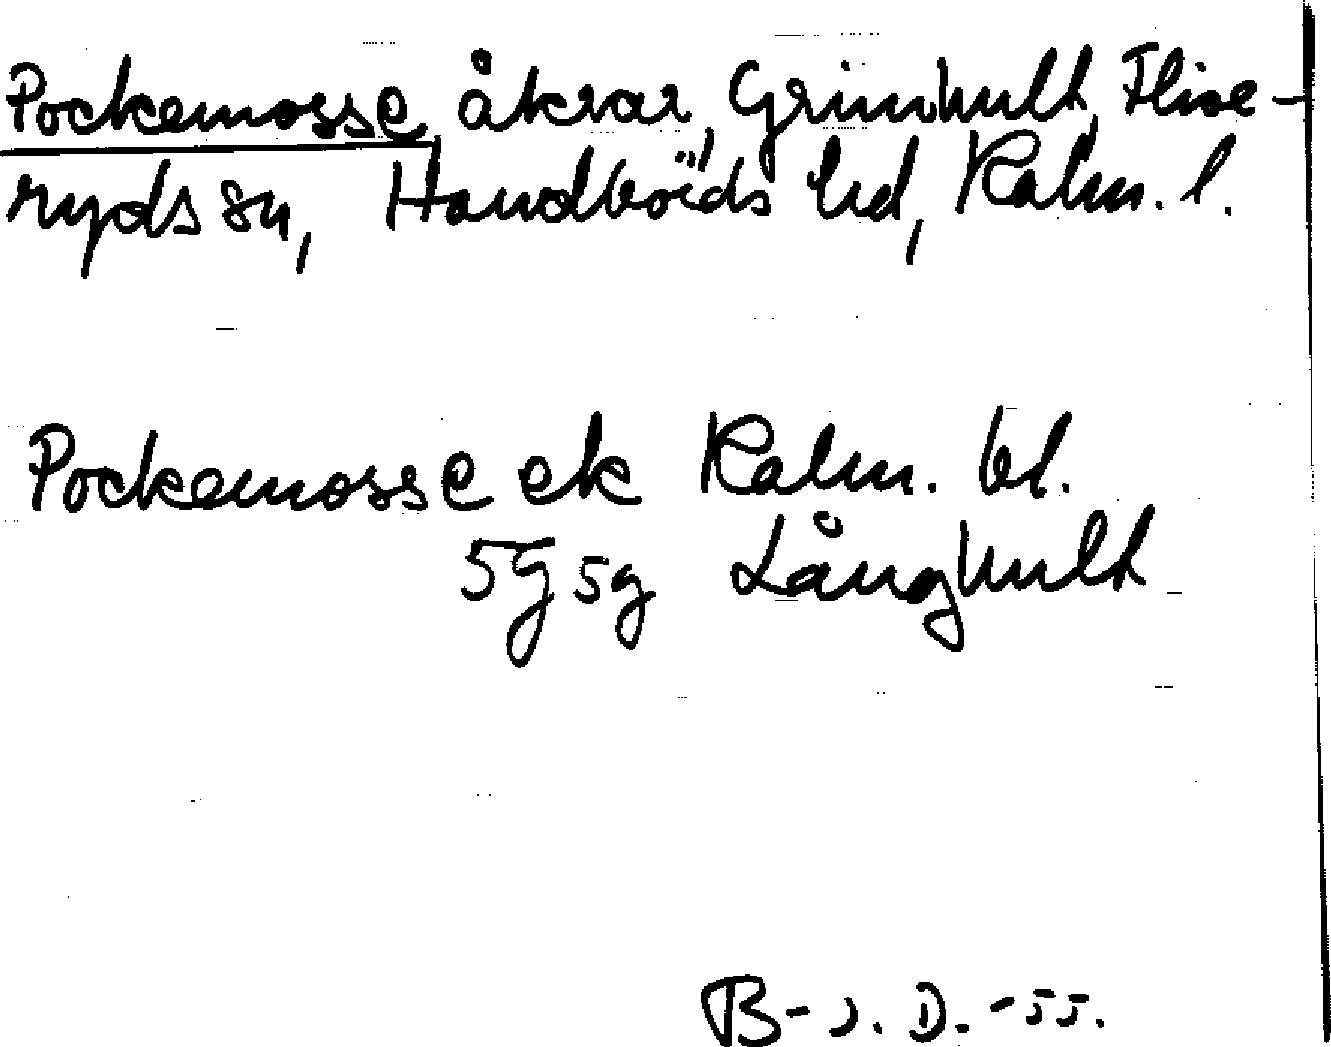 Pockemosse åkrar, Grimhult, Flise-
ryds sn, Handbörds hd, Kalm. l.
Pockemosse ek Kalm. bl.
5g 5g Långhult
B-J. D. -55.